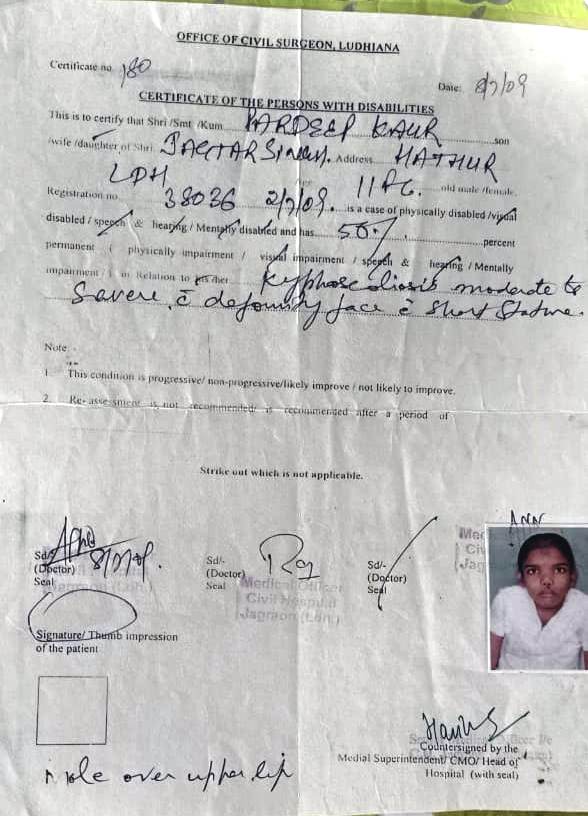 OFFICE OF CIVIL SURGEON, LUDHIANA
Certificate no 180
Date: 8/7/09
CERTIFICATE OF THE PERSONS WITH DISABILITIES
This is to certify that Shri /Smt /Kum PARDEEP KAUR son
/wife /daughter of Shri JAGTAR SINGH. Address HATHUR
LDH 11 F. old male /female.
Registration no 38036 2/7/09. is a case of physically disabled /visual
disabled / speech & hearing / Mentally disabled and has 50% percent
permanent ( physically impairment / visual impairment / speech & hearing / Mentally
impairment ) in Relation to his /her Kyphoscoliosis moderate to
Savere, c deformity face c Short Stature.
Note. -
1 This condition is progressive/ non-progressive/likely improve / not likely to improve.
2. Re- assessment is not recommended/ is recommended after a period of
Strike out which is not applicable.
8/7/09.
Sd/- Sd/- Sd/-
(Doctor) (Doctor) (Doctor)
Seal Seal Seal
Medical Officer
Civil Hospital
Jagraon (Ldh.)
Signature/ Thumb impression
of the patient
Countersigned by the
Medial Superintendent/ CMO/ Head of
Hospital (with seal)
mole over upper lip